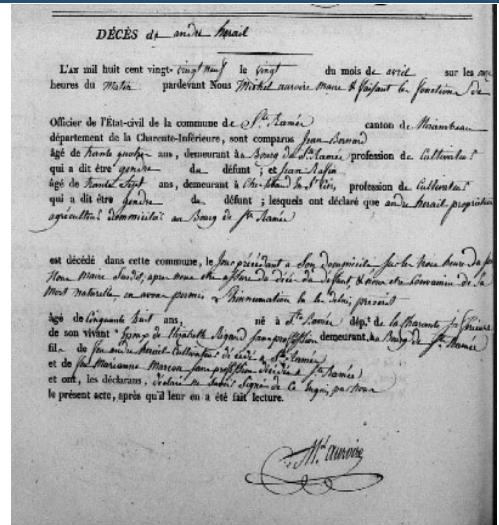 DÉCÈS de andré herail
L'AN mil huit cent vingt-vingt neuf le vingt du mois de avril sur les onze
heures du Matin pardevant Nous Michel auroire Maire & faisant les fonctions de
Officier de l'État-civil de la commune de Ste Ramée canton de Mirambeau
département de la Charente-Inférieure, sont comparus Jean Bernard
âgé de trente quatre ans, demeurant au Bourg de Ste Ramée profession de Cultivateur
qui a dit être gendre du défunt; et Jean
âgé de trente Sept ans, demeurant à profession de Cultivateur
qui a dit être gendre du défunt; lesquels ont déclaré que andré herail propriétaire
agriculteur domicilié au Bourg de Ste Ramée
est décédé dans cette commune, le jour précédent a Son domicile sur les neuf heures du
Nous Maire Susdit, après nous être assuré du décès du défunt, & nous être convaincu de Sa
Mort naturelle, en avons permis L'hinnumation
âgé de Cinquante huit ans, né à Ste Ramée dép.t de la Charente Inférieure
de son vivant Epoux de Elizabeth Sans profession demeurant au Bourg de Ste Ramée
fil de feu herail Cultivateur décédé à Ste Ramée
et de feu Marianne Sans profession décédée à Ste Ramée
et ont, les déclarans, déclaré ne Savoir Signer de Ce Enquis, par Nous
le présent acte, après qu'il leur en a été fait lecture.
Mel auroire